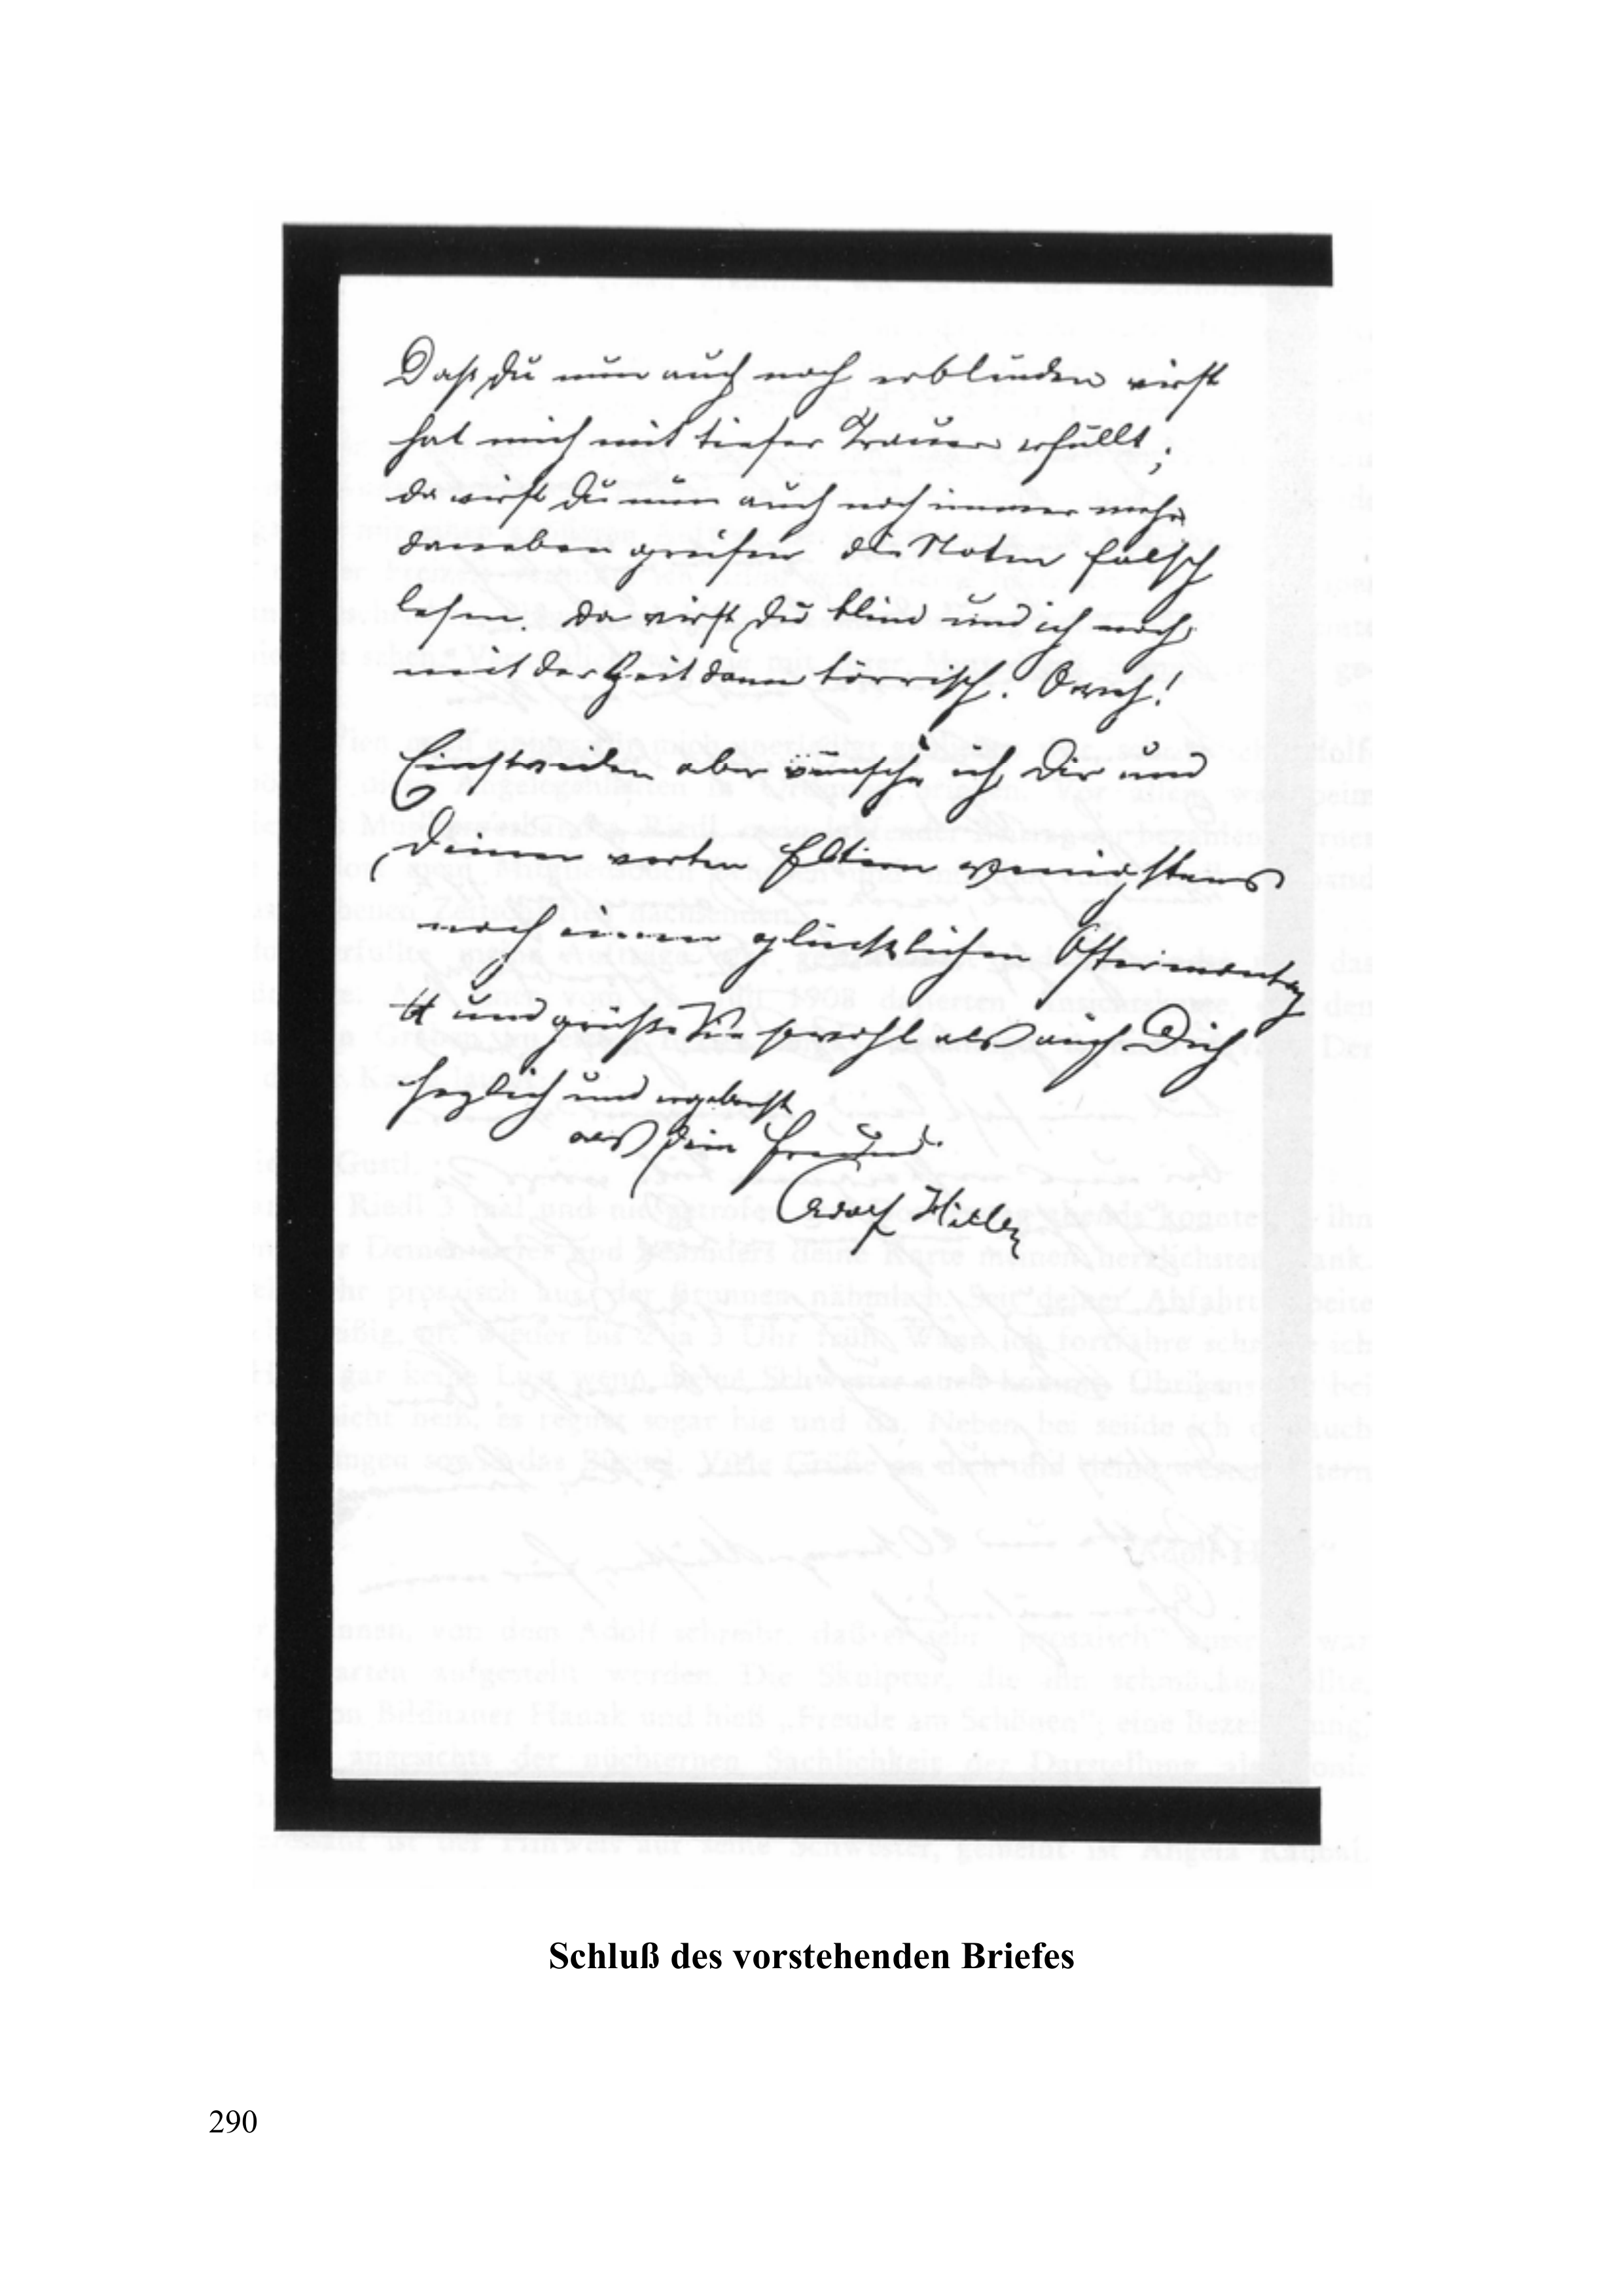 Daß du nun auch noch erblinden wirst
hat mich mit tiefer Trauer erfüllt;
da wirst du nun auch noch immer mehr
daneben greifen die Noten falsch
lesen. Da wirst du blind und ich noch
mit der Zeit dann törrisch. Oweh!
Einstweilen aber wünsche ich Dir und
Deinen werten Eltern wenigstens
noch einen glücklichen Ostermontag
und grüße Sie sowohl als auch Dich
herzlich und ergebenst
als dein Freund
Adolf Hitler
Schluß des vorstehenden Briefes
290